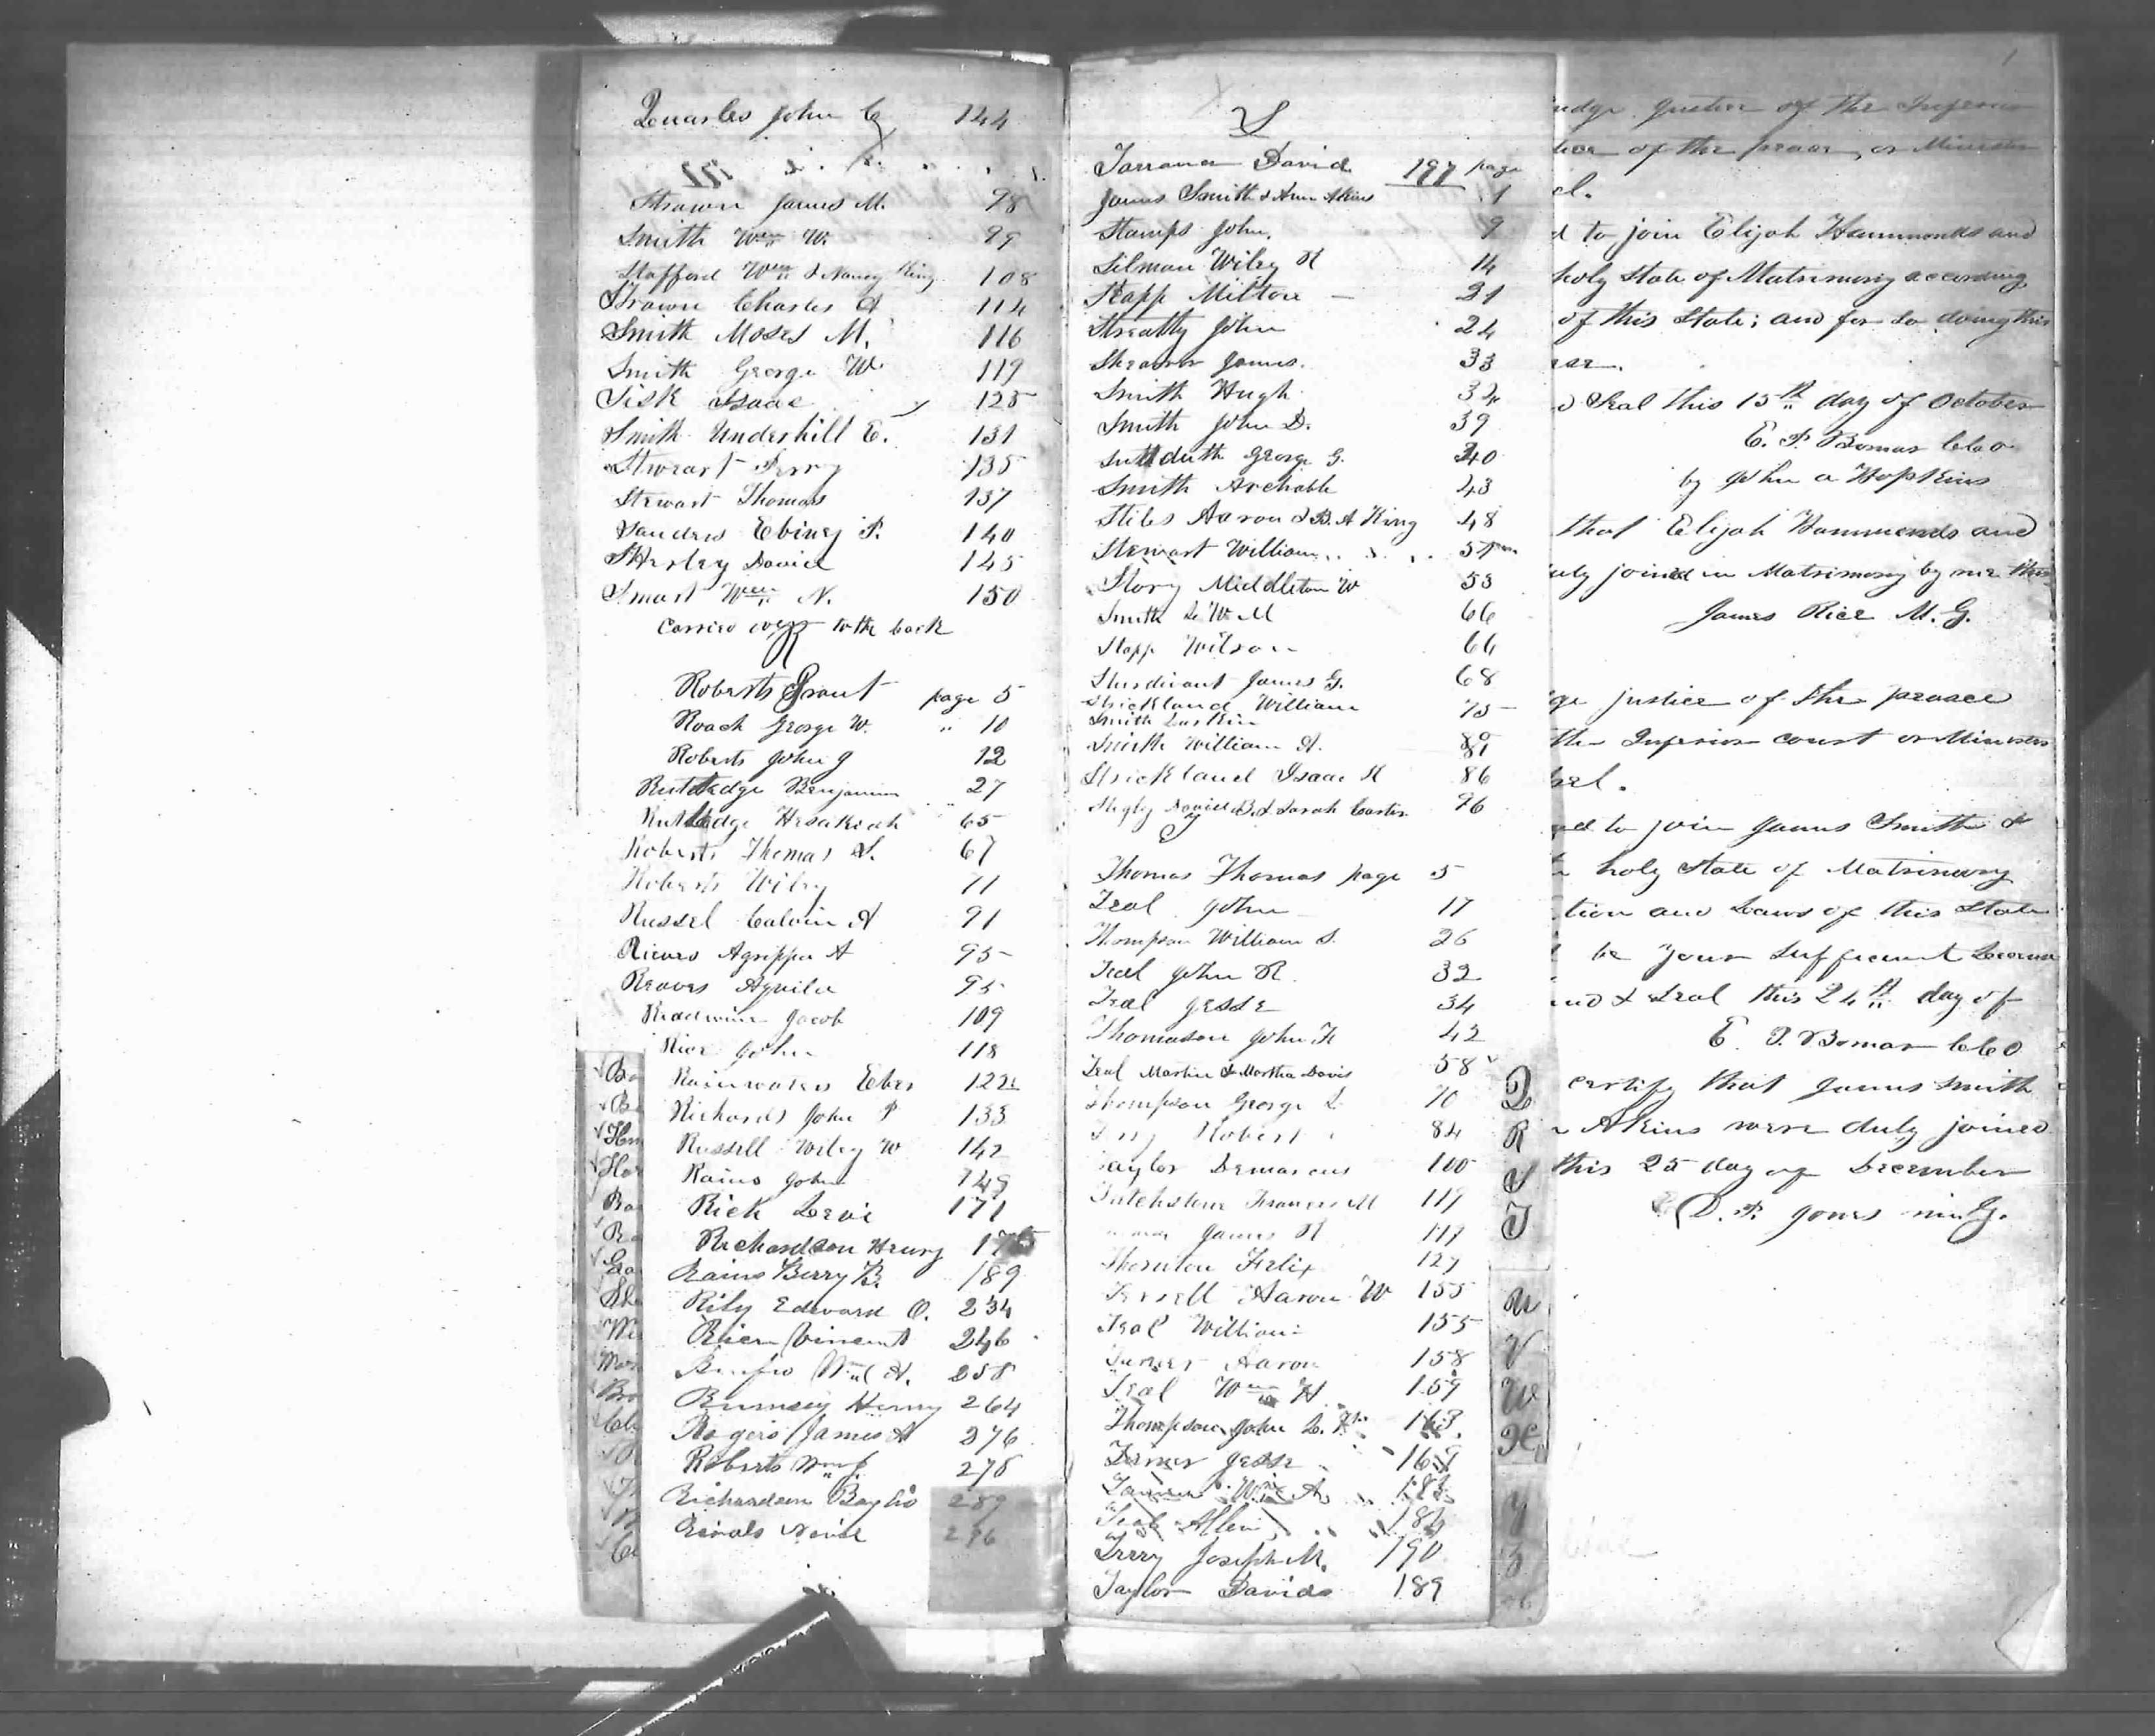 Quarles John C 144
Strawn James M. 98
Smith Wm W. 99
Stafford Wm & Nancy King 108
Strawn Charles A 114
Smith Moses M. 116
Smith George W. 119
Sisk Isaac 125
Smith Underhill E. 131
Stweart Perry 135
Stewart Thomas 137
Sanders Ebiney P. 140
Sherley David 145
Smart Wm N. 150
Carried over to the back
Roberts Grant page 5
Roach George W. " 10
Roberts John J 12
Rutledge Benjamin 27
Rutledge Hesakiah 65
Roberts Thomas S. 67
Roberts Wiley 71
Russel Calvin A 91
Rieves Agrippa A 95
Reaves Aquila 95
Readwine Jacob 109
Rice John 118
Rainwaters Eber 122
Richards John P 133
Russell Wiley W 142
Rains John 149
Rick Levi 171
Richardson Henry
Rains Berry B. 189
Rily Edward O. 234
Rice Vincent 246
Renfro Wm A. 258
Rumsey Henry 264
Rogers James A 276
Roberts Wm J. 278
Richardson Baylis 289
David 296
S
David 197 page
James Smith & Ann Akins 1
Stamps John. 9
Silman Wiley R 14
Stapp Milton — 21
Streatty John 24
Shearer James. 33
Smith Hugh 34
Smith John D. 39
Sudduth George G. 40
Smith Archable 43
Stiles Aaron & B. A King 48
Stewart William 51
Story Middleton W 53
Smith L. W. M 66
Stapp Wilson 66
Sturdivant James G. 68
Strickland William 75
Smith Larkin 80
Smith William A. 81
Strickland Isaac H 86
David B. & Sarah Carter 96
Thomas Thomas page 5
Teal John 17
Thompson William S. 26
Teal John R. 32
Teal Jesse 34
Thomason John F 42
Teal Martin & Martha Davis 58
Thompson George L. 70
Robert 84
Taylor Demarcus 100
Tatchstone Francis M 117
James R 117
Thornton Felix 127
Terrell Aaron W 155
Teal William 155
Turner Aaron 158
Teal Wm H 159
Thompson John L. 163
Turner Jesse 169
Wm A. 183
Teal Allen 184
Terry Joseph M. 190
Taylor David 189
Q
R
S
T
U
V
W
X
Y
Z
1
udge Justice of the Inferior
tice of the peace, or Minister
el.
d to join Elijah Hammonds and
holy State of Matrimony according
of this State; and for so doing this
d Seal this 15th day of October
E. P. Bomar C.C.O
by John A Hopkins
that Elijah Hammonds and
uly joined in Matrimony by me this
James Rice M. G.
ge justice of the peace
the Inferior court or Minister
pel.
ed to join James Smith &
holy State of Matrimony
tion and Laws of this State
be your sufficient License
and & Seal this 24th day of
E. P. Bomar C.C.O
certify that James Smith
Akins were duly joined
this 25 day of December
D. P. Jones min. G.